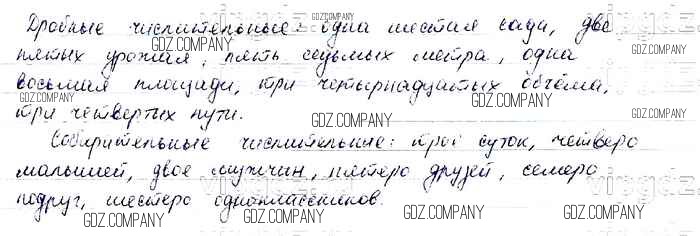 Дробные числительные: одна шестая сада, две
пятых урожая, пять седьмых метра, одна
восьмая площади, три четырнадцатых объёма,
три четвертых пути.
Собирательные числительные: трое суток, четверо
малышей, двое мужчин, пятеро друзей, семеро
подруг, шестеро одноклассников.
GDZ.COMPANY
GDZ.COMPANY
GDZ.COMPANY
GDZ.COMPANY
GDZ.COMPANY
GDZ.COMPANY
GDZ.COMPANY
GDZ.COMPANY
GDZ.COMPANY
GDZ.COMPANY
GDZ.COMPANY
GDZ.COMPANY
GDZ.COMPANY